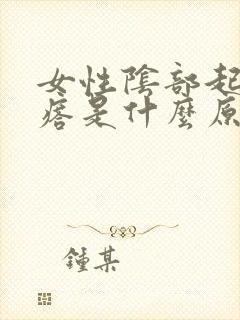 女性陰部起
痞是什麼原
鍾某